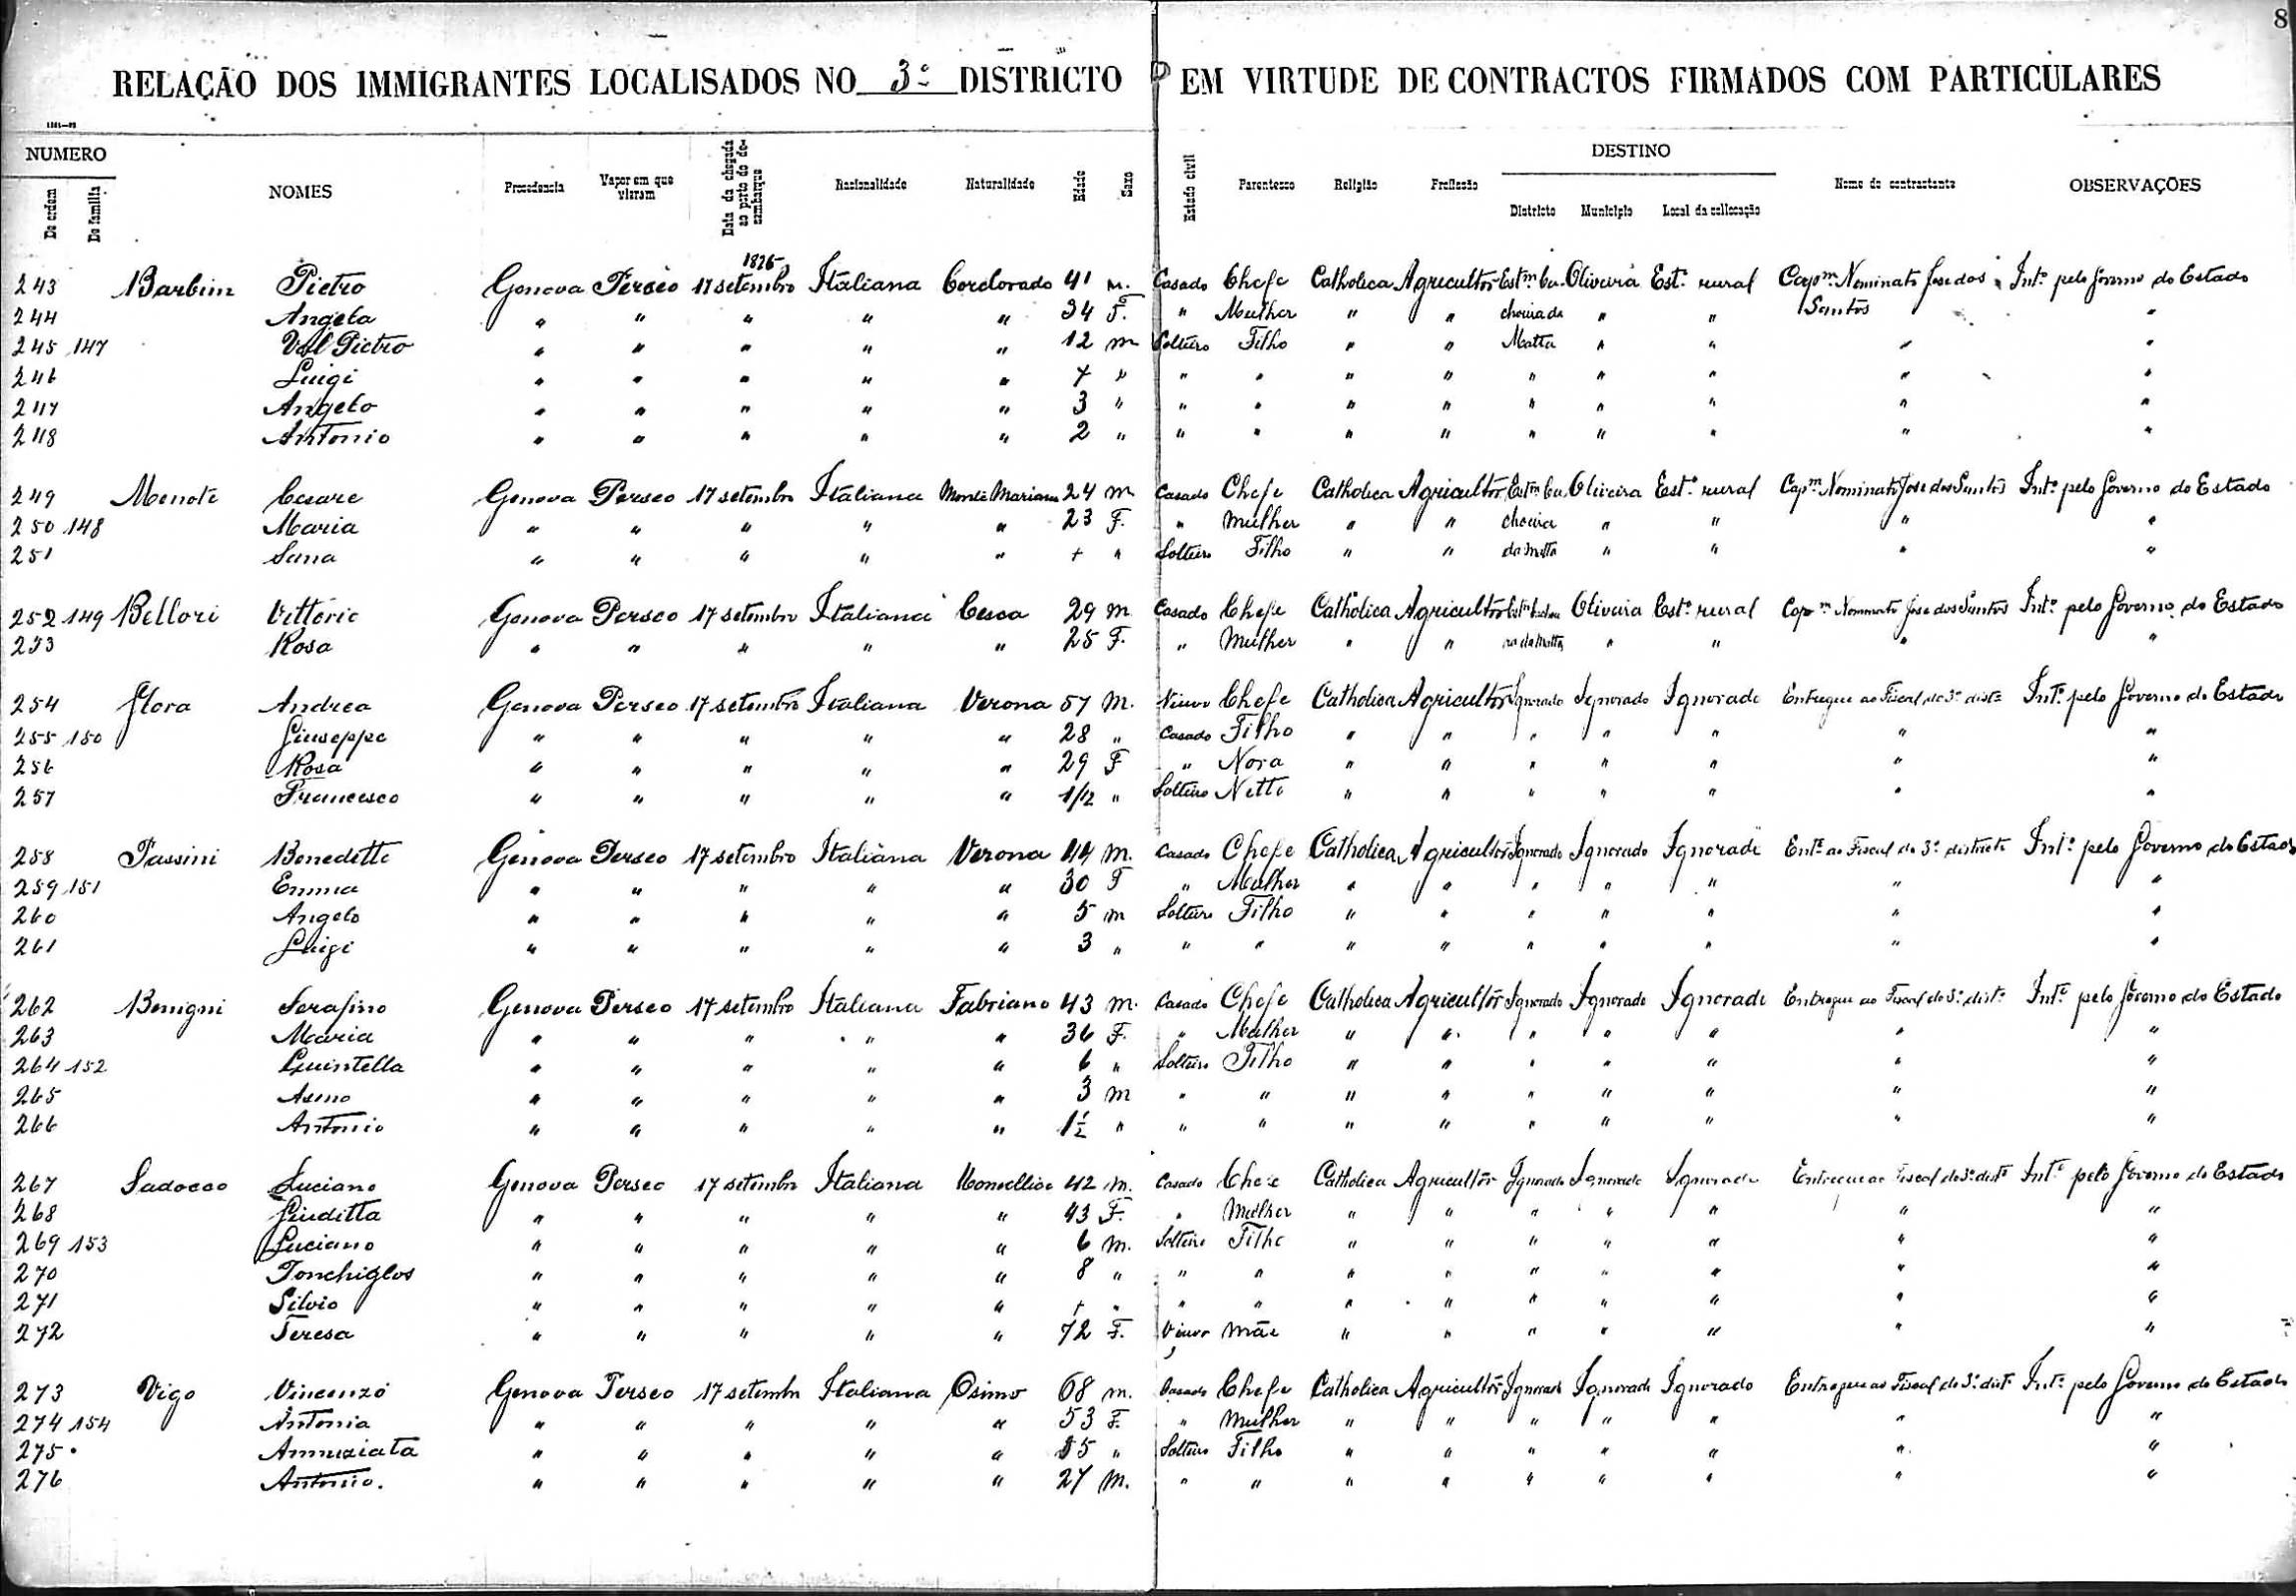 8
RELAÇÃO DOS IMMIGRANTES LOCALISADOS NO 3º DISTRICTO EM VIRTUDE DE CONTRACTOS FIRMADOS COM PARTICULARES
NUMERO DESTINO
De ordem De familia NOMES Procedencia Vapor em que vieram Data da chegada ao porto do desembarque Nacionalidade Naturalidade Edade Sexo Estado civil Parentesco Religião Profissão Districto Municipio Local da collocação Nome do contractante OBSERVAÇÕES
243 Barbim Pietro Genova Perseo 17 setembro Italiana Corclorado 41 m. Casado Chefe Catholica Agricultor Estm Ca- Oliveira Est. rural Capm. Nominato Jose dos Int. pelo Governo do Estado
244 Angela " " " " " 34 F. " Mulher " " choeira da " " Santos "
245 147 Pietro " " " " " 12 m Solteiro Filho " " Matta " " " "
246 Luigi " " " " " 7 " " " " " " " " " "
247 Angelo " " " " " 3 " " " " " " " " " "
248 Antonio " " " " " 2 " " " " " " " " " "
249 Menote Cesare Genova Perseo 17 setembro Italiana Monte Mariano 24 m Casado Chefe Catholica Agricultor Estm Ca- Oliveira Est. rural Capm. Nominato Jose dos Santos Int. pelo Governo do Estado
250 148 Maria " " " " " 23 F. " Mulher " " choeira " " " "
251 Sana " " " " " + " Solteiro Filho " " da Matta " " " "
252 149 Bellori Vittorio Genova Perseo 17 setembro Italiana Cesca 29 m Casado Chefe Catholica Agricultor Oliveira Est. rural Capm Nominato Jose dos Santos Int. pelo Governo do Estado
253 Rosa " " " " " 25 F. " Mulher " " ra da Matta " " " "
254 Flora Andrea Genova Perseo 17 setembro Italiana Verona 57 M. Viuvo Chefe Catholica Agricultor Ignorado Ignorado Ignorado Entregue ao Fiscal do 3º distº Int. pelo Governo do Estado
255 150 Giuseppe " " " " " 28 " Casado Filho " " " " " " "
256 Rosa " " " " " 29 F " Nora " " " " " " "
257 Francesco " " " " " 1/12 " Solteiro Netto " " " " " " "
258 Passini Benedetto Genova Perseo 17 setembro Italiana Verona 44 m. Casado Chefe Catholica Agricultor Ignorado Ignorado Ignorado Ent. ao Fiscal do 3º districto Int. pelo Governo do Estado
259 151 Emma " " " " " 30 F " Mulher " " " " " " "
260 Angelo " " " " " 5 m Solteiro Filho " " " " " " "
261 Luigi " " " " " 3 " " " " " " " " " "
262 Benigni Serafino Genova Perseo 17 setembro Italiana Fabriano 43 m. Casado Chefe Catholica Agricultor Ignorado Ignorado Ignorado Entregue ao Fiscal do 3º distº Int. pelo Governo do Estado
263 Maria " " " " " 36 F. " Mulher " " " " " " "
264 152 Quintella " " " " " 6 " Solteiro Filho " " " " " " "
265 " " " " " 3 m " " " " " " " " "
266 Antonio " " " " " 1½ " " " " " " " " " "
267 Sadocco Luciano Genova Perseo 17 setembro Italiana 42 m. Casado Chefe Catholica Agricultor Ignorado Ignorado Ignorado Entregue ao Fiscal do 3º distº Int. pelo Governo do Estado
268 Giuditta " " " " " 43 F. " Mulher " " " " " " "
269 153 Luciano " " " " " 6 m. Solteiro Filho " " " " " " "
270 Tonchiglos " " " " " 8 " " " " " " " " " "
271 Silvio " " " " " + " " " " " " " " " "
272 Teresa " " " " " 72 F. Viuvo Mãe " " " " " " "
273 Vigo Vincenzo Genova Perseo 17 setembro Italiana Osimo 68 m. Casado Chefe Catholica Agricultor Ignorado Ignorado Ignorado Entregue ao Fiscal do 3º distº Int. pelo Governo do Estado
274 154 Antonia " " " " " 53 F. " Mulher " " " " " " "
275 Annuziata " " " " " 15 " Solteiro Filho " " " " " " "
276 Antonio. " " " " " 27 M. " " " " " " " " "